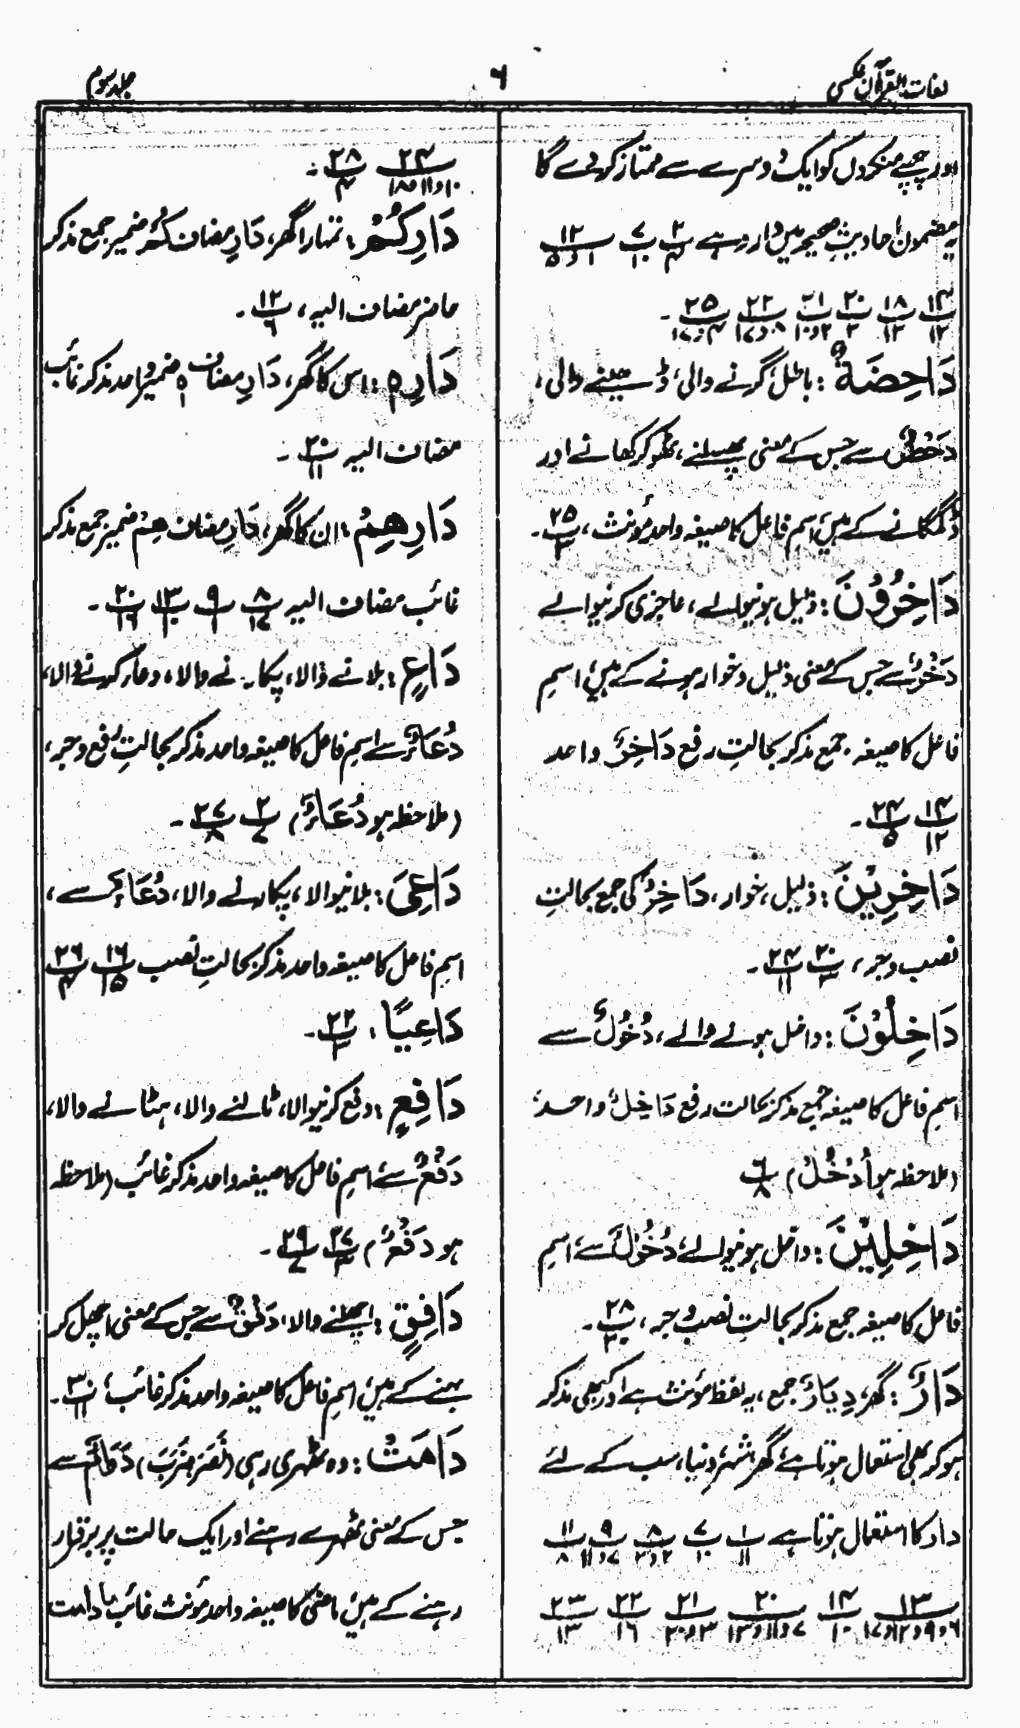 لغات القرآن عکسی
۶
جلد سوم
اور چھپے منکروں کو ایک دوسرے سے ممتاز کر دے گا
یہ مضمون احادیثِ صحیحہ میں وارد ہے ۲/۴ ۷/۱۰ ۱۲/۱و۵
۱۴/۱۲ ۱۸/۱۲ ۲۰/۲ ۲۱/۲و۱۰ ۲۲/۸و۱۷ ۲۵/۴و۱۷ ۔
دَاحِضَةٌ : باطل، گرنے والی، ڈھلنے والی،
دَحْضٌ سے جس کے معنی پھسلنے، ٹھوکر کھانے اور
ڈگمگانے کے ہیں، اسم فاعل کا صیغہ واحد مؤنث، ۲۵/۳ ۔
دَاخِرُوْنَ : ذلیل ہونیوالے، عاجزی کرنیوالے
دَخْرٌ سے جس کے معنی ذلیل و خوار ہونے کے ہیں، اسمِ
فاعل کا صیغہ جمع مذکر بحالتِ رفع دَاخِرٌ واحد
۱۴/۱۲ ۲۳/۵ ۔
دَاخِرِیْنَ : ذلیل، خوار، دَاخِرٌ کی جمع بحالتِ
نصب و جر، ۲۰/۳ ۲۴/۱۱ ۔
دَاخِلُوْنَ : داخل ہونے والے، دُخُوْلٌ سے
اسمِ فاعل کا صیغہ جمع مذکر بحالت رفع دَاخِلٌ واحد،
(ملاحظہ ہو اُدْخُلْ) ۶/۸
دَاخِلِیْنَ : داخل ہونیوالے، دُخُوْلٌ سے، اسمِ
فاعل کا صیغہ جمع مذکر بحالتِ نصب و جر، ۲۸/۲۰ ۔
دَارٌ : گھر، دِیَارٌ جمع، یہ لفظ مؤنث ہے اور کبھی مذکر
ہو کر بھی استعمال ہوتا ہے، گھر، شہر، دنیا، سب کے لئے
دار کا استعمال ہوتا ہے ۱/۱۱ ۷/۱۰ ۸/۲و۳ ۹/۷و۱۱ ۱۱/۸
۱۳/۶و۹و۱۲و۱۷ ۱۴/۱۰ ۲۰/۷و۱۱و۱۳ ۲۱/۳و۲۰ ۲۲/۱۶ ۲۳/۱۳
۲۴/۱۰و۱۱و۱۸ ۲۸/۴ ۔
دَارِکُمْ : تمہارا گھر، دَارِ مضاف کُمْ ضمیر جمع مذکر
حاضر مضاف الیہ، ۱۲/۶ ۔
دَارِہٖ : اس کا گھر، دَارِ مضاف ہٖ ضمیر واحد مذکر غائب
مضاف الیہ ۲۰/۱۱ ۔
دَارِھِمْ : ان کا گھر، دَارِ مضاف ھِمْ ضمیر جمع مذکر
غائب مضاف الیہ ۸/۱۷ ۹/۱ ۱۳/۱۰ ۲۰/۱۶ ۔
دَاعٍ : بلانے والا، پکارنے والا، دعا کرنے والا،
دُعَاءٌ سے اسمِ فاعل کا صیغہ واحد مذکر بحالتِ رفع و جر،
(ملاحظہ ہو دُعَاءٌ) ۲/۷ ۲۷/۸ ۔
دَاعِیَ : بلانیوالا، پکارنے والا، دُعَاءٌ سے،
اسمِ فاعل کا صیغہ واحد مذکر بحالتِ نصب ۱۶/۱۵ ۲۶/۴
دَاعِیًا : ۲۲/۳ ۔
دَافِعٍ : دفع کرنیوالا، ٹالنے والا، ہٹانے والا،
دَفْعٌ سے، اسمِ فاعل کا صیغہ واحد مذکر غائب (ملاحظہ
ہو دَفْعٌ) ۲۷/۳ ۲۹/۷ ۔
دَافِقٍ : اچھلنے والا، دَفْقٌ سے جس کے معنی اچھل کر
بہنے کے ہیں، اسمِ فاعل کا صیغہ واحد مذکر غائب، ۳۰/۱۱ ۔
دَامَتْ : وہ ٹھہری رہی (نَصَرَ ضَرَبَ) دَوَامٌ سے
جس کے معنی ٹھہرے رہنے اور ایک حالت پر برقرار
رہنے کے ہیں، ماضی کا صیغہ واحد مؤنث غائب